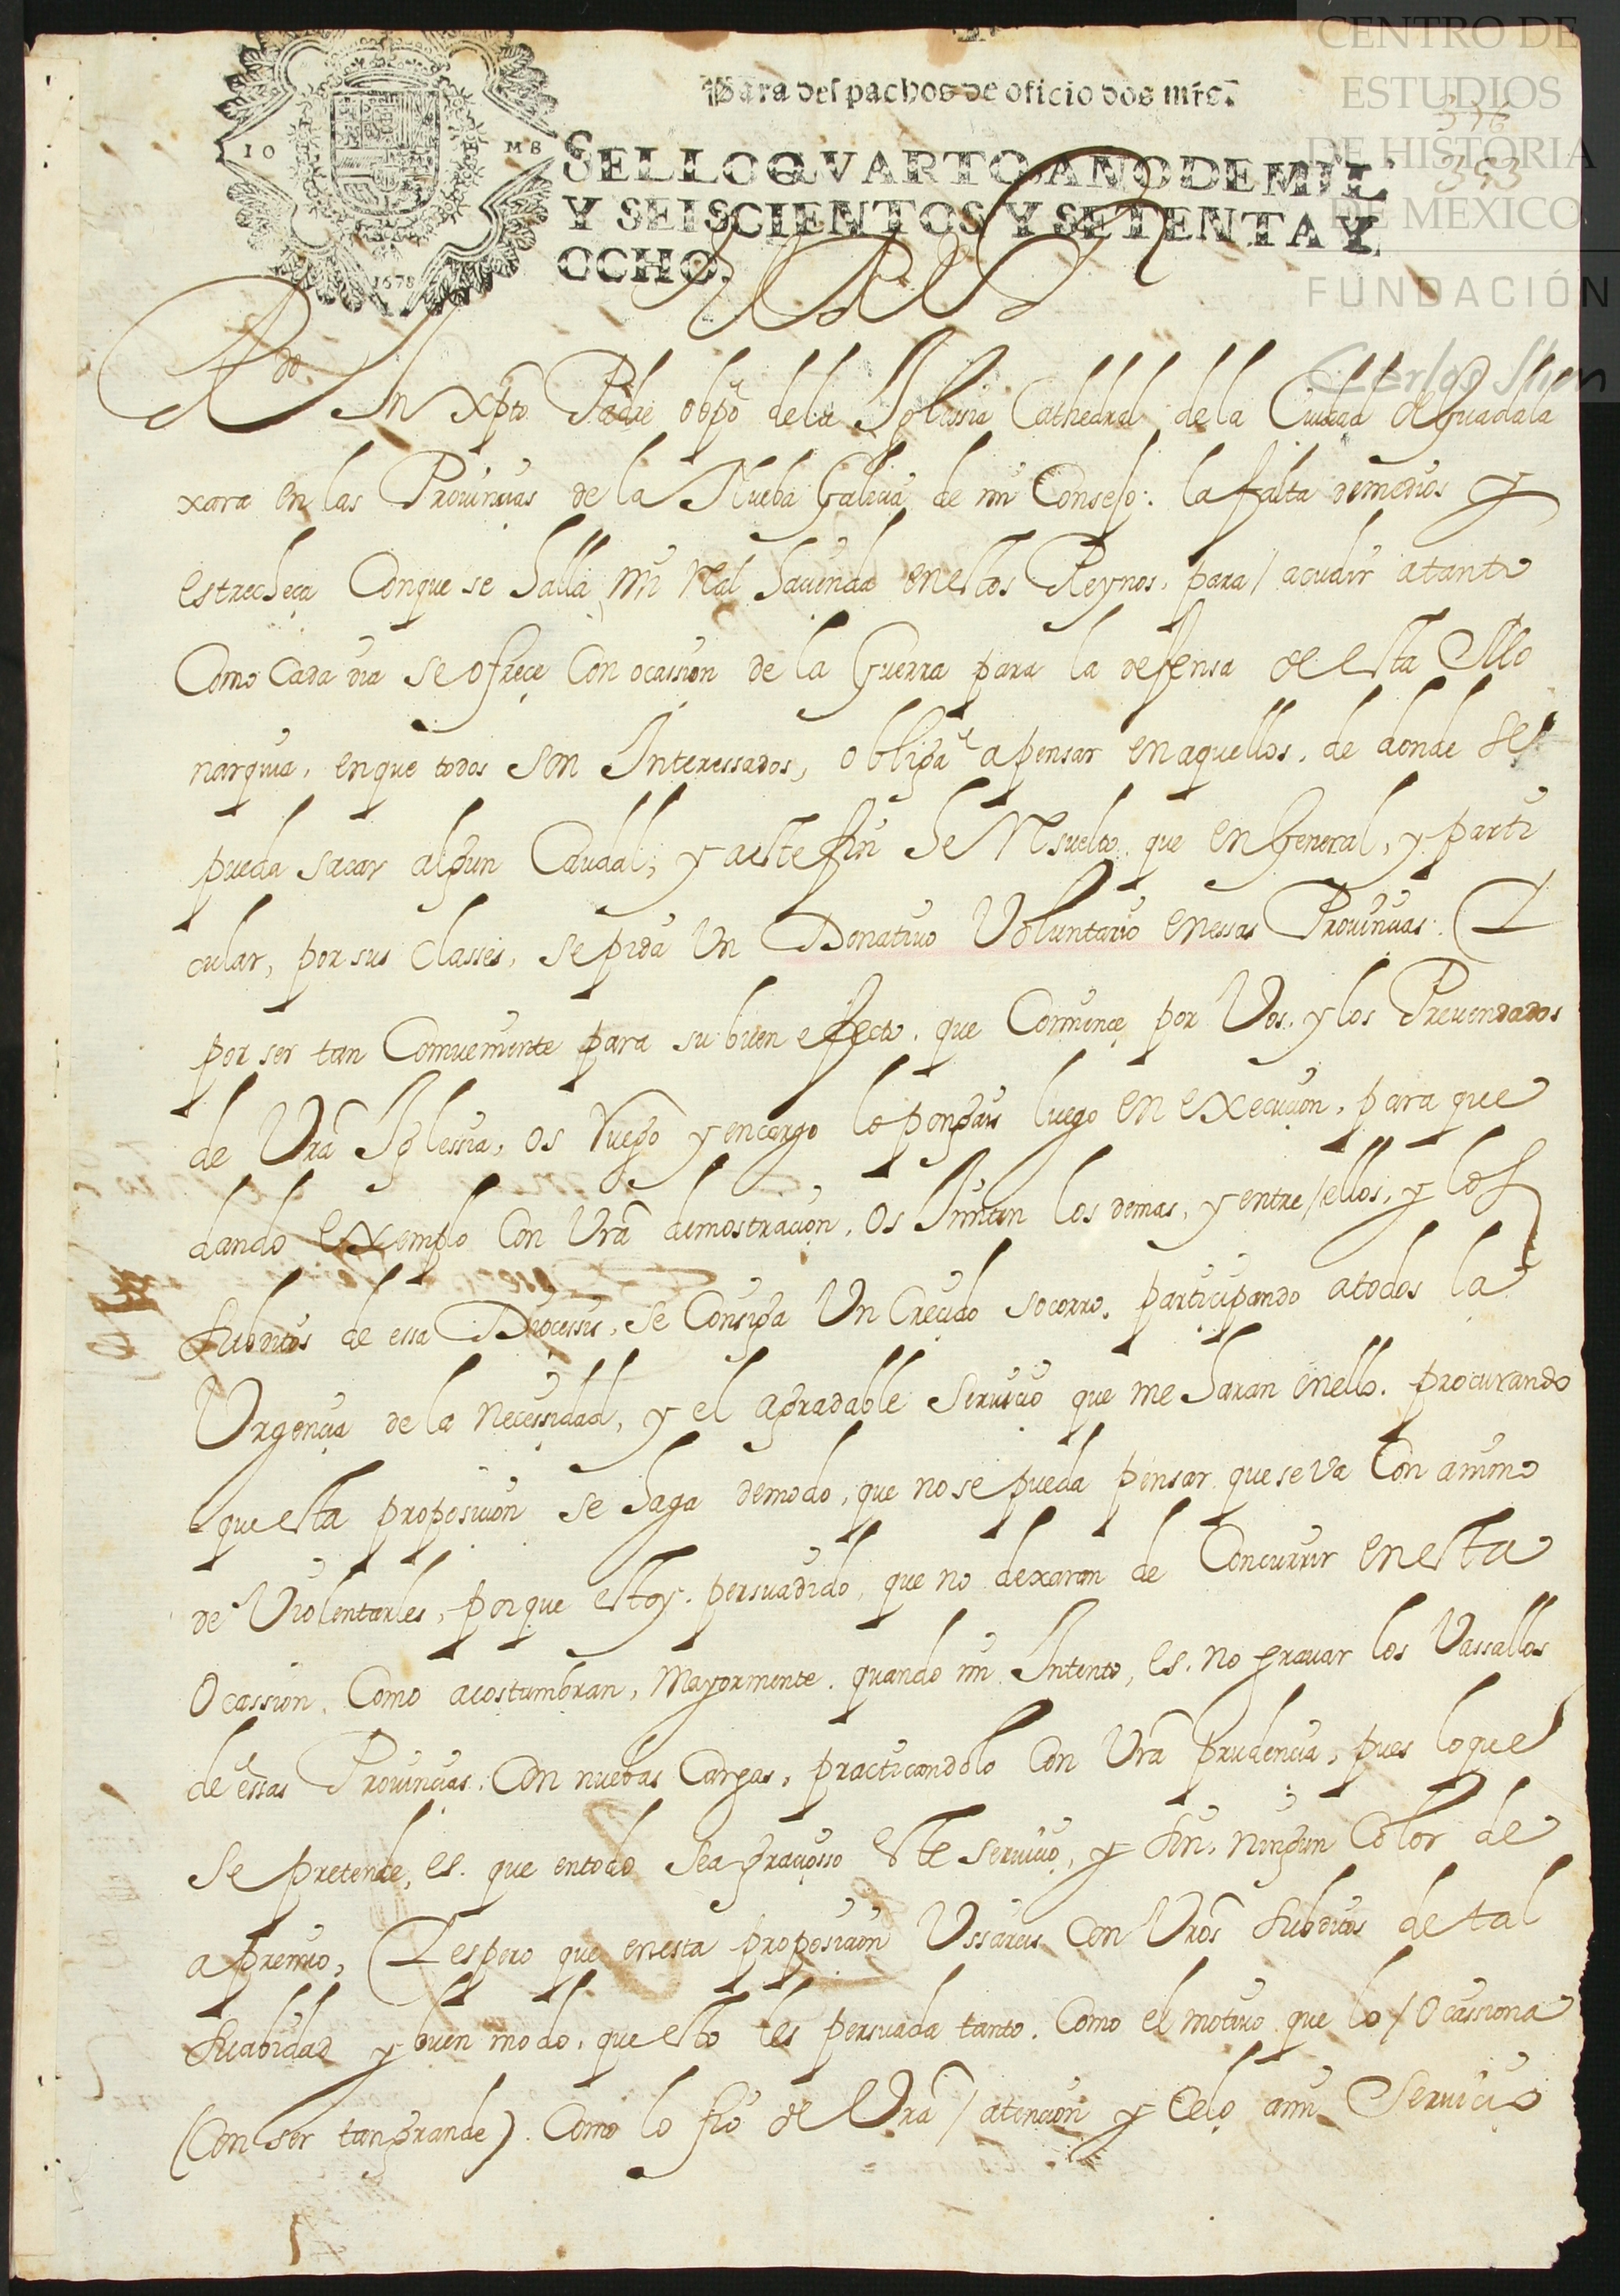 Para despachos de oficio dos mrs.
SELLO QVARTO, AÑO DE MIL
Y SEISCIENTOS Y SETENTA Y
OCHO.
1678
CENTRO DE
ESTUDIOS
DE HISTORIA
DE MEXICO
FUNDACIÓN
Carlos Slim
393
El Rey
Rdo In Xpto Padre obpo de la Iglessia Cathedral de la Ciudad de Guadala
xara en las Prouinçias de la Nueba Galiçia de mi Consejo: la falta de medios y
estrecheça Con que se halla mi Ral haçienda en estos Reynos, para acudir a tanto
Como Cada dia se ofreçe Con ocassion de la Guerra para la defensa de esta Mo
narquia, en que todos son Interessados, obliga a pensar en aquellos, de donde se
pueda sacar algun Caudal, y a este fin he Resuelto que en General, y parti
cular, por sus classes, se pida Un Donatiuo Voluntario en essas Prouinçias. Y
por ser tan Comueniente para su buen efecto, que Comiençe por Vos, y los Preuendados
de Vra Iglessia, os ruego y encargo lo pongais luego en execuçion, para que
dando exemplo Con Vra demostraçion, os Imiten los demas, y entre ellos, y los
subditos de essa Dioçessis, se Consiga Un Creçido socorro, partiçipando a todos la
Urgençia de la neçessidad, y el agradable seruiçio que me haran en ello, procurando
que esta proposiçion se haga de modo, que no se pueda pensar que se va Con animo
de Violentarles, porque estoy persuadido, que no dexaran de Concurrir en esta
Ocassion, Como acostumbran, Mayormente, quando mi Intento, es, no grauar los Vassallos
de essas Prouinçias, Con nuebas Cargas, practicandolo Con Vra prudençia, pues lo que
se pretende, es, que en todo sea graçiosso este seruiçio, y sin ningun Color de
apremio, Y espero que en esta proposiçion Ussareis Con Vros subditos de tal
suabidad y buen modo, que esto les persuada tanto, Como el motiuo que lo Ocassiona
(Con ser tan grande). Como lo fio de Vra atençion y Celo a mi Seruiçio